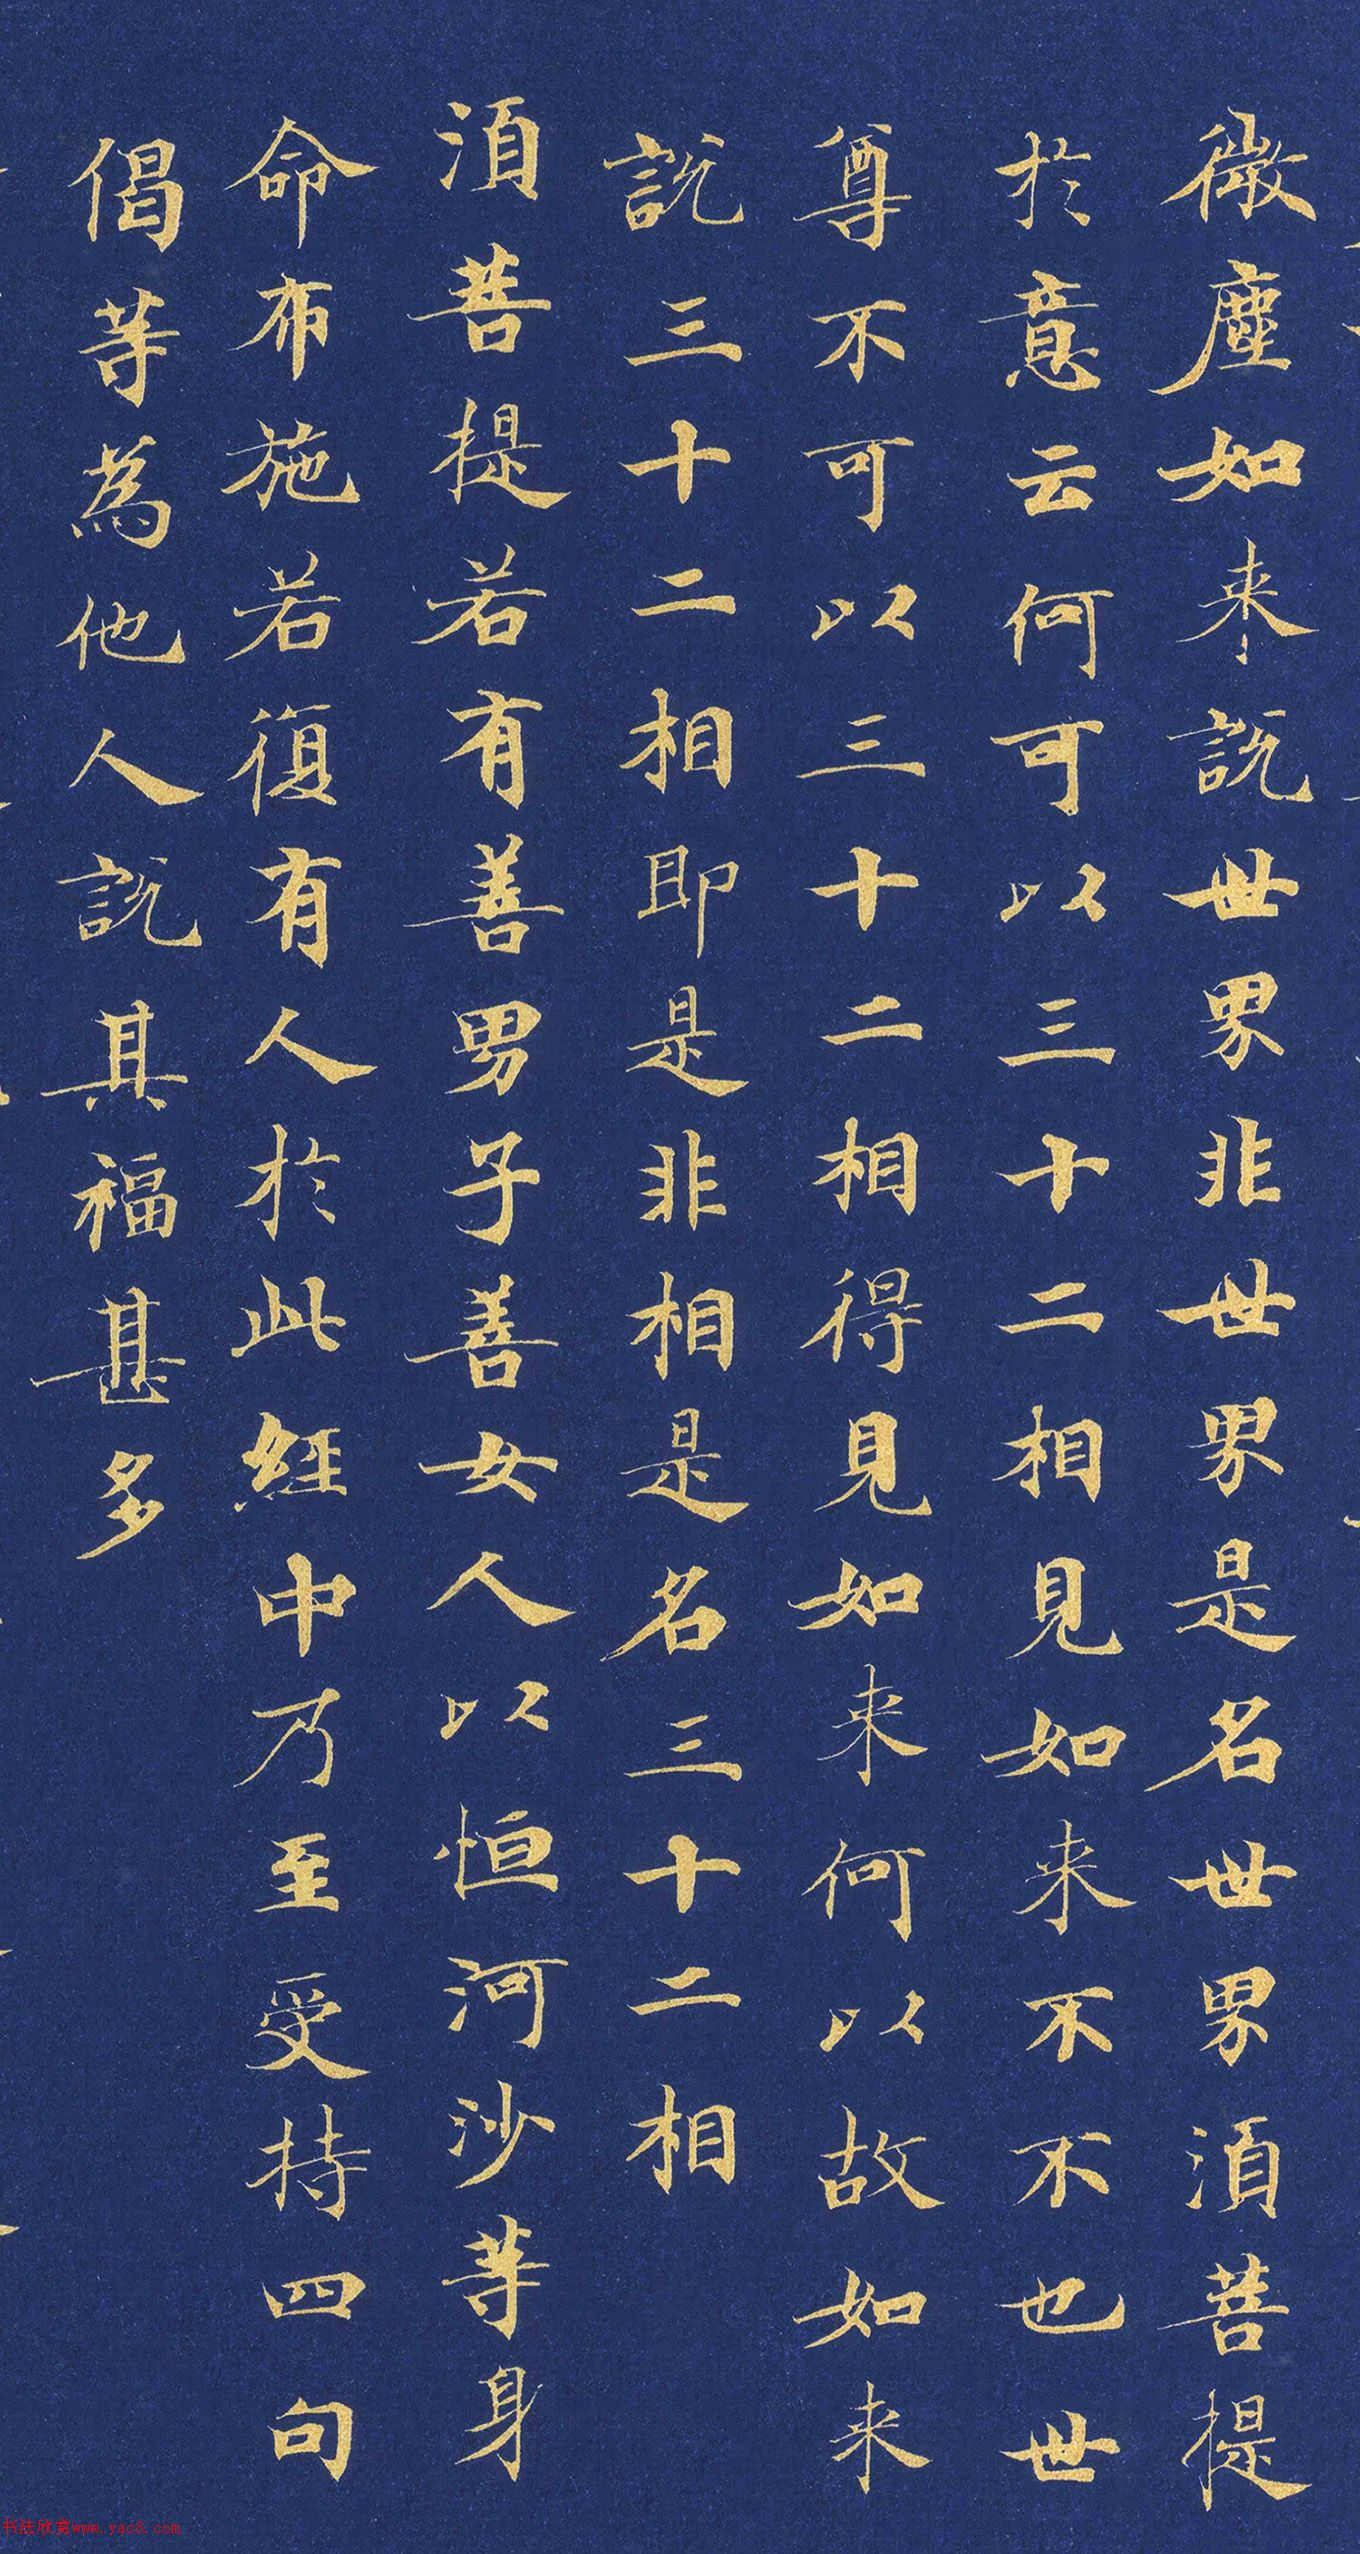 微塵如来說世界非世界是名世界湏菩提
於意云何可以三十二相見如来不不也世
尊不可以三十二相得見如来何以故如来
說三十二相即是非相是名三十二相
湏菩提若有善男子善女人以恒河沙等身
命布施若復有人於此經中乃至受持四句
偈等為他人說其福甚多
书法欣赏www.yac8.com